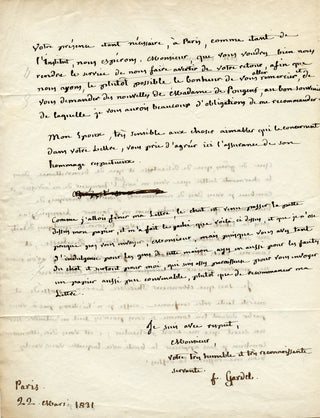 votre présence étant nécessaire, à Paris, comme étant de
l'Institut, nous espérons, Monsieur, que vous voudrez bien nous
rendre le service de nous faire avertir de votre retour, afin que
nous ayons, le plutôt possible le bonheur de vous remercier, de
vous demander des nouvelles de Madame de Pougens, au bon souvenir
de laquelle je vous aurois beaucoup d'obligations de me recommander.
Mon Epoux, très sensible aux choses aimables qui le concernent
dans votre Lettre, vous prie d'agréer ici l'assurance de son
hommage respectueux.
Comme j'allois finir ma Lettre le chat est venu passer la patte
dessus mon papier, et m'a fait le paté que voilà ci dessus, et que je n'ose
pas vous envoyer, Monsieur, mais puisque vous avez tant
d'indulgence pour les gens de cette maison, ayez en aussi pour les fautes
du chat et surtout pour moi, qui suis assez paresseuse pour vous envoyer
un papier aussi peu convenable, plutôt que de recommencer ma
Lettre.
Je suis avec respect,
Monsieur
votre très humble et très reconnaissante
servante.
f. Gardel.
Paris.
22 Mars 1831